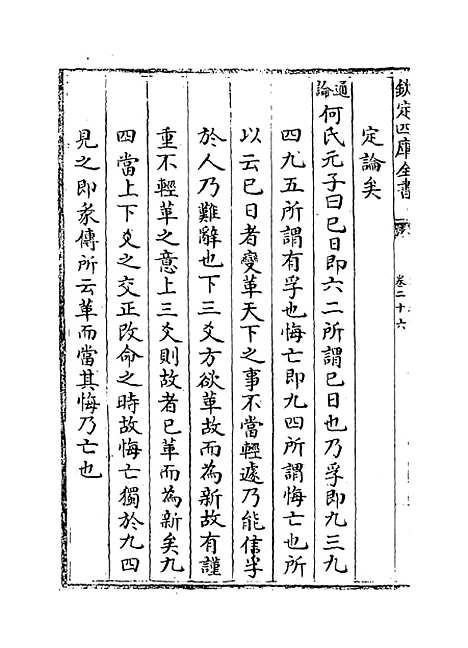 欽定四庫全書
卷二十六
定論矣
通論
何氏元子曰巳日即六二所謂巳日也乃孚即九三九
四九五所謂有孚也悔亡即九四所謂悔亡也所
以云巳日者變革天下之事不當輕遽乃能信孚
於人乃難辭也下三爻方欲革故而為新故有謹
重不輕革之意上三爻則故者已革而為新矣九
四當上下爻之交正改命之時故悔亡獨於九四
見之即彖傳所云革而當其悔乃亡也